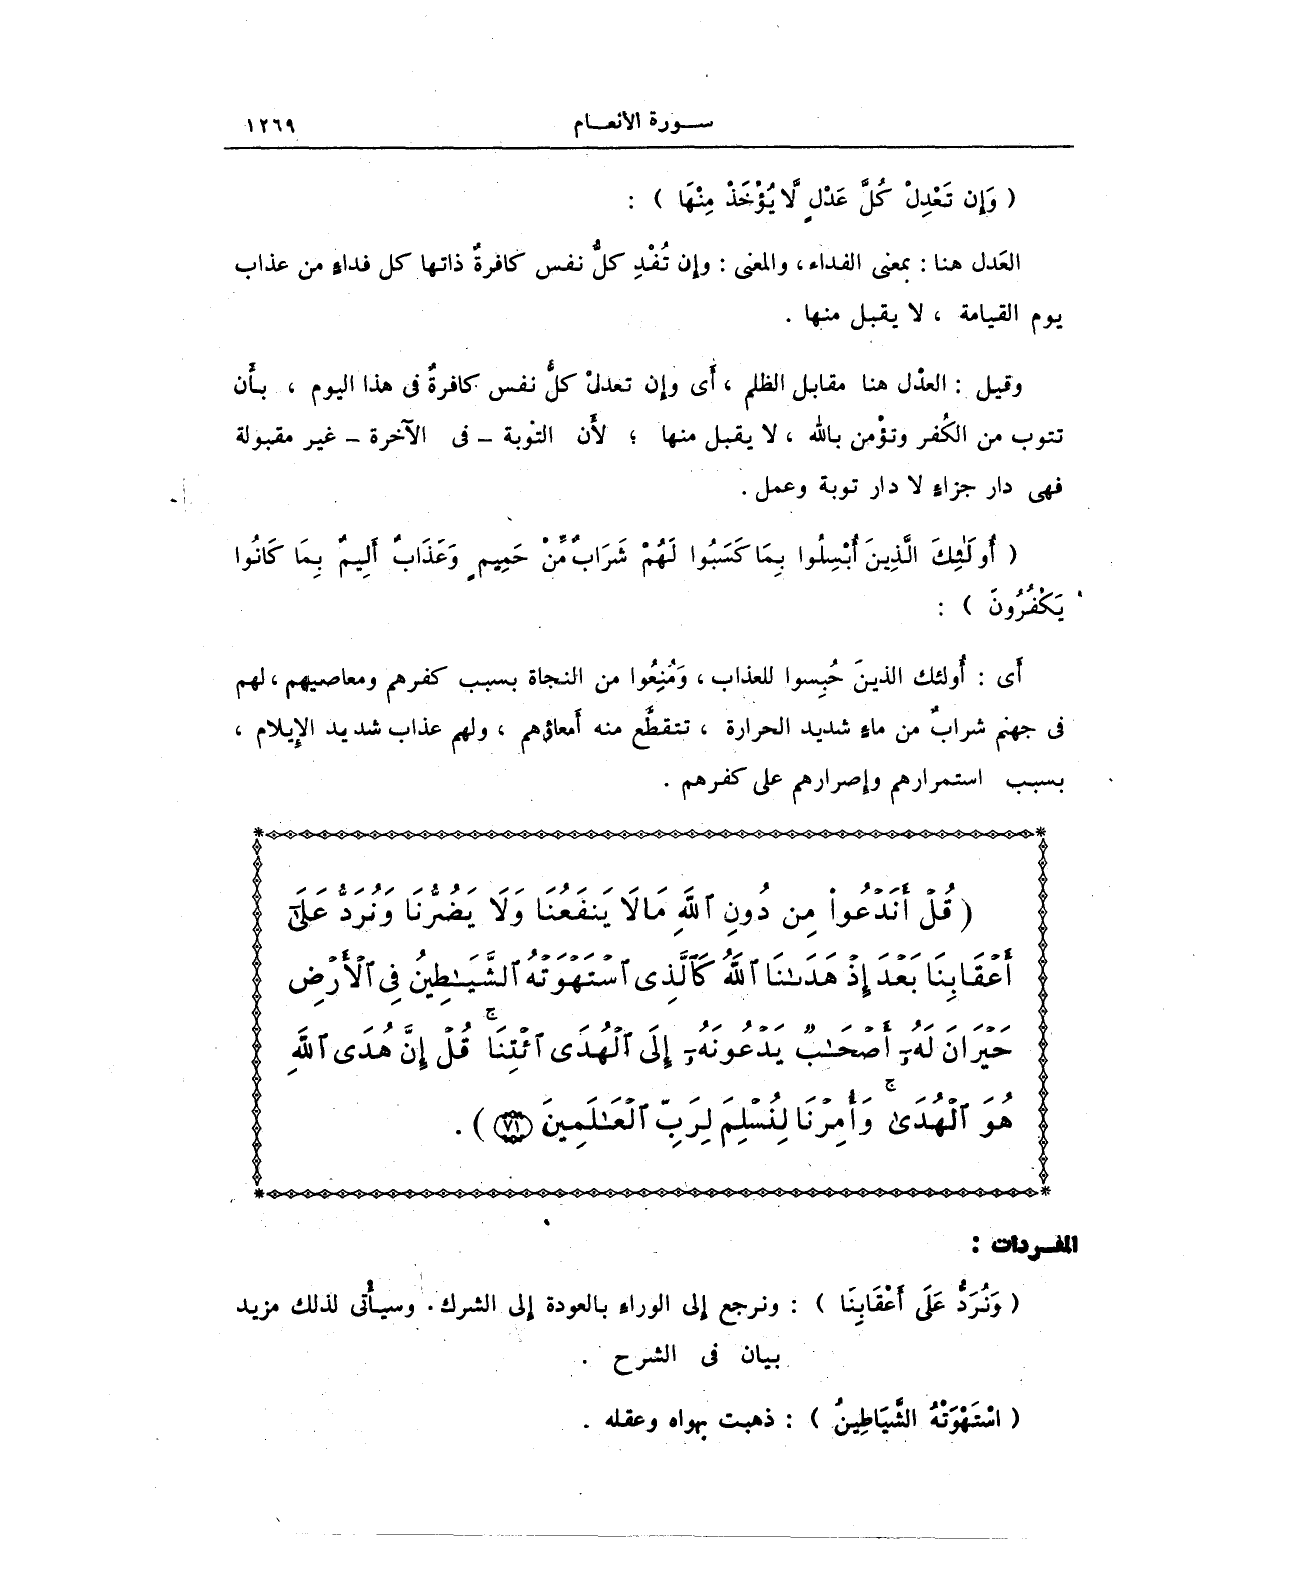 سورة الأنعام ١٢٦٩
( وَإِن تَعْدِلْ كُلَّ عَدْلٍ لَّا يُؤْخَذْ مِنْهَا ) :
العَدل هنا : بمعنى الفداء ، والمعنى : وإن تُفْدِ كلُّ نفس كافرةٌ ذاتها كل فداءٍ من عذاب
يوم القيامة ، لا يقبل منها .
وقيل : العدْل هنا مقابل الظلم ، أى وإن تعدلْ كلُّ نفس كافرةٌ فى هذا اليوم ، بأن
تتوب من الكُفر وتؤمن بالله ، لا يقبل منها ؛ لأن التوبة – فى الآخرة – غير مقبولة
فهى دار جزاءٍ لا دار توبة وعمل .
( أُولَٰئِكَ الَّذِينَ أُبْسِلُوا بِمَا كَسَبُوا لَهُمْ شَرَابٌ مِّنْ حَمِيمٍ وَعَذَابٌ أَلِيمٌ بِمَا كَانُوا
يَكْفُرُونَ ) :
أى : أُولئك الذينَ حُبِسوا للعذاب ، وَمُنِعُوا من النجاة بسبب كفرهم ومعاصيهم ، لهم
فى جهنم شرابٌ من ماءٍ شديد الحرارة ، تتقطَّع منه أمعاؤهم ، ولهم عذاب شديد الإيلام ،
بسبب استمرارهم وإصرارهم على كفرهم .
( قُلْ أَنَدْعُوا۟ مِن دُونِ ٱللَّهِ مَالَا يَنفَعُنَا وَلَا يَضُرُّنَا وَنُرَدُّ عَلَىٰٓ
أَعْقَابِنَا بَعْدَ إِذْ هَدَىٰنَا ٱللَّهُ كَٱلَّذِى ٱسْتَهْوَتْهُ ٱلشَّيَـٰطِينُ فِى ٱلْأَرْضِ
حَيْرَانَ لَهُۥٓ أَصْحَـٰبٌ يَدْعُونَهُۥٓ إِلَى ٱلْهُدَى ٱئْتِنَا ۚ قُلْ إِنَّ هُدَى ٱللَّهِ
هُوَ ٱلْهُدَىٰ ۚ وَأُمِرْنَا لِنُسْلِمَ لِرَبِّ ٱلْعَـٰلَمِينَ ٧١ ) .
المفردات :
( وَنُرَدُّ عَلَى أَعْقَابِنَا ) : ونرجع إلى الوراء بالعودة إلى الشرك . وسيأتى لذلك مزيد
بيان فى الشرح .
( اسْتَهْوَتْهُ الشَّيَاطِينُ ) : ذهبت بهواه وعقله .